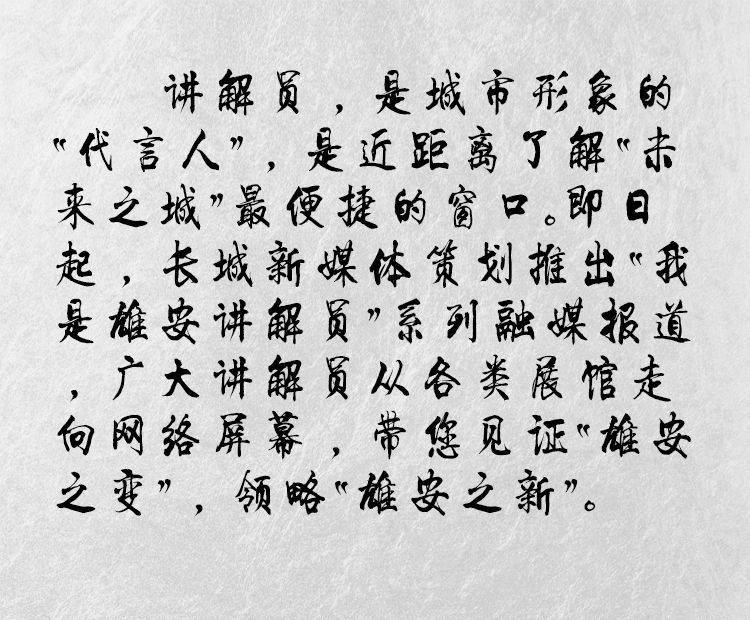 讲解员，是城市形象的
“代言人”，是近距离了解“未
来之城”最便捷的窗口。即日
起，长城新媒体策划推出“我
是雄安讲解员”系列融媒报道
，广大讲解员从各类展馆走
向网络屏幕，带您见证“雄安
之变”，领略“雄安之新”。